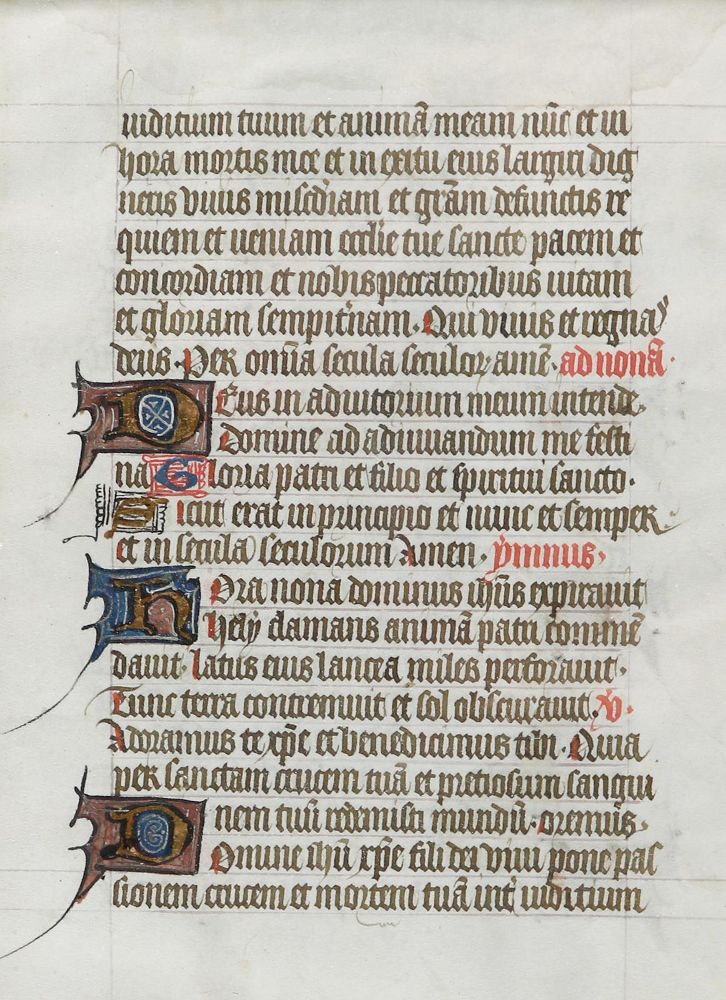 iuditium tuum et animā meam nūc et in
hora mortis mee et in exitu eius largiri dig
neris vivis misc̄diam et grām defunctis re
quiem et veniam ecclie tue sancte pacem et
concordiam et nobis peccatoribus vitam
et gloriam sempit'nam. Qui vivis et regnas
deus. Per om̄ia secula seculoꝝ amē. ad nonā.
Deus in adiutorium meum intende.
Domine ad adiuvandum me festi
na Gloria patri et filio et spiritui sancto.
Sicut erat in principio et nunc et semper.
et in secula seculorum Amen. ymnus.
Hora nona dominus ihūs expiravit
hely clamans animā patri commē
davit. latus eius lancea miles perforavit.
Tunc terra contremuit et sol obscuravit. V.
Adoramus te xp̄e et benedicimus tibi. Quia
per sanctam crucem tuā et pretiosum sangui
nem tuū redemisti mundū. oremus.
Domine ihū xp̄e fili dei vivi pone pas
sionem crucem et mortem tuā int' iuditium